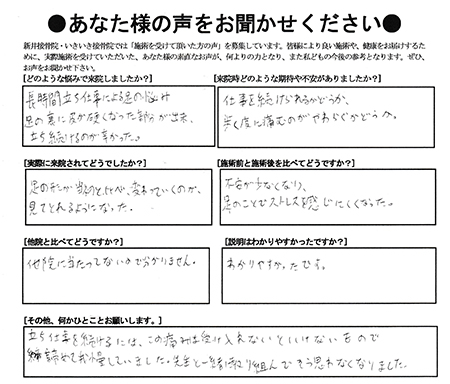 ●あなた様の声をお聞かせください●
新井接骨院・いきいき接骨院では「施術を受けて頂いた方の声」を募集しています。皆様により良い施術や、健康をお届けするた
めに、実際施術を受けていただいた、あなた様の素直なお声が、何よりの力となり、また私どもの今後の参考となります。ぜひ、
お声をお聞かせ下さい。
[どのような悩みで来院しましたか?]
長時間立ち仕事による足の悩み
足の裏に皮が硬くなった部分が出来、
立ち続けるのが辛かった。
[来院時どのような期待や不安がありましたか?]
仕事を続けられるかどうか、
歩く度に痛むのがやわらぐかどうか。
[実際に来院されてどうでしたか?]
足の形が当初と比べ、変わっていくのが、
見てとれるようになった。
[施術前と施術後を比べてどうですか?]
不安が少なくなり、
足のことでストレスを感じにくくなった。
[他院と比べてどうですか?]
他院に当たってないので分かりません。
[説明はわかりやすかったですか?]
わかりやすかったです。
[その他、何かひとことお願いします。]
立ち仕事を続けるには、この痛みは受け入れないといけないもので
諦めて我慢していました。先生と一緒に取り組んでそう思わなくなりました。